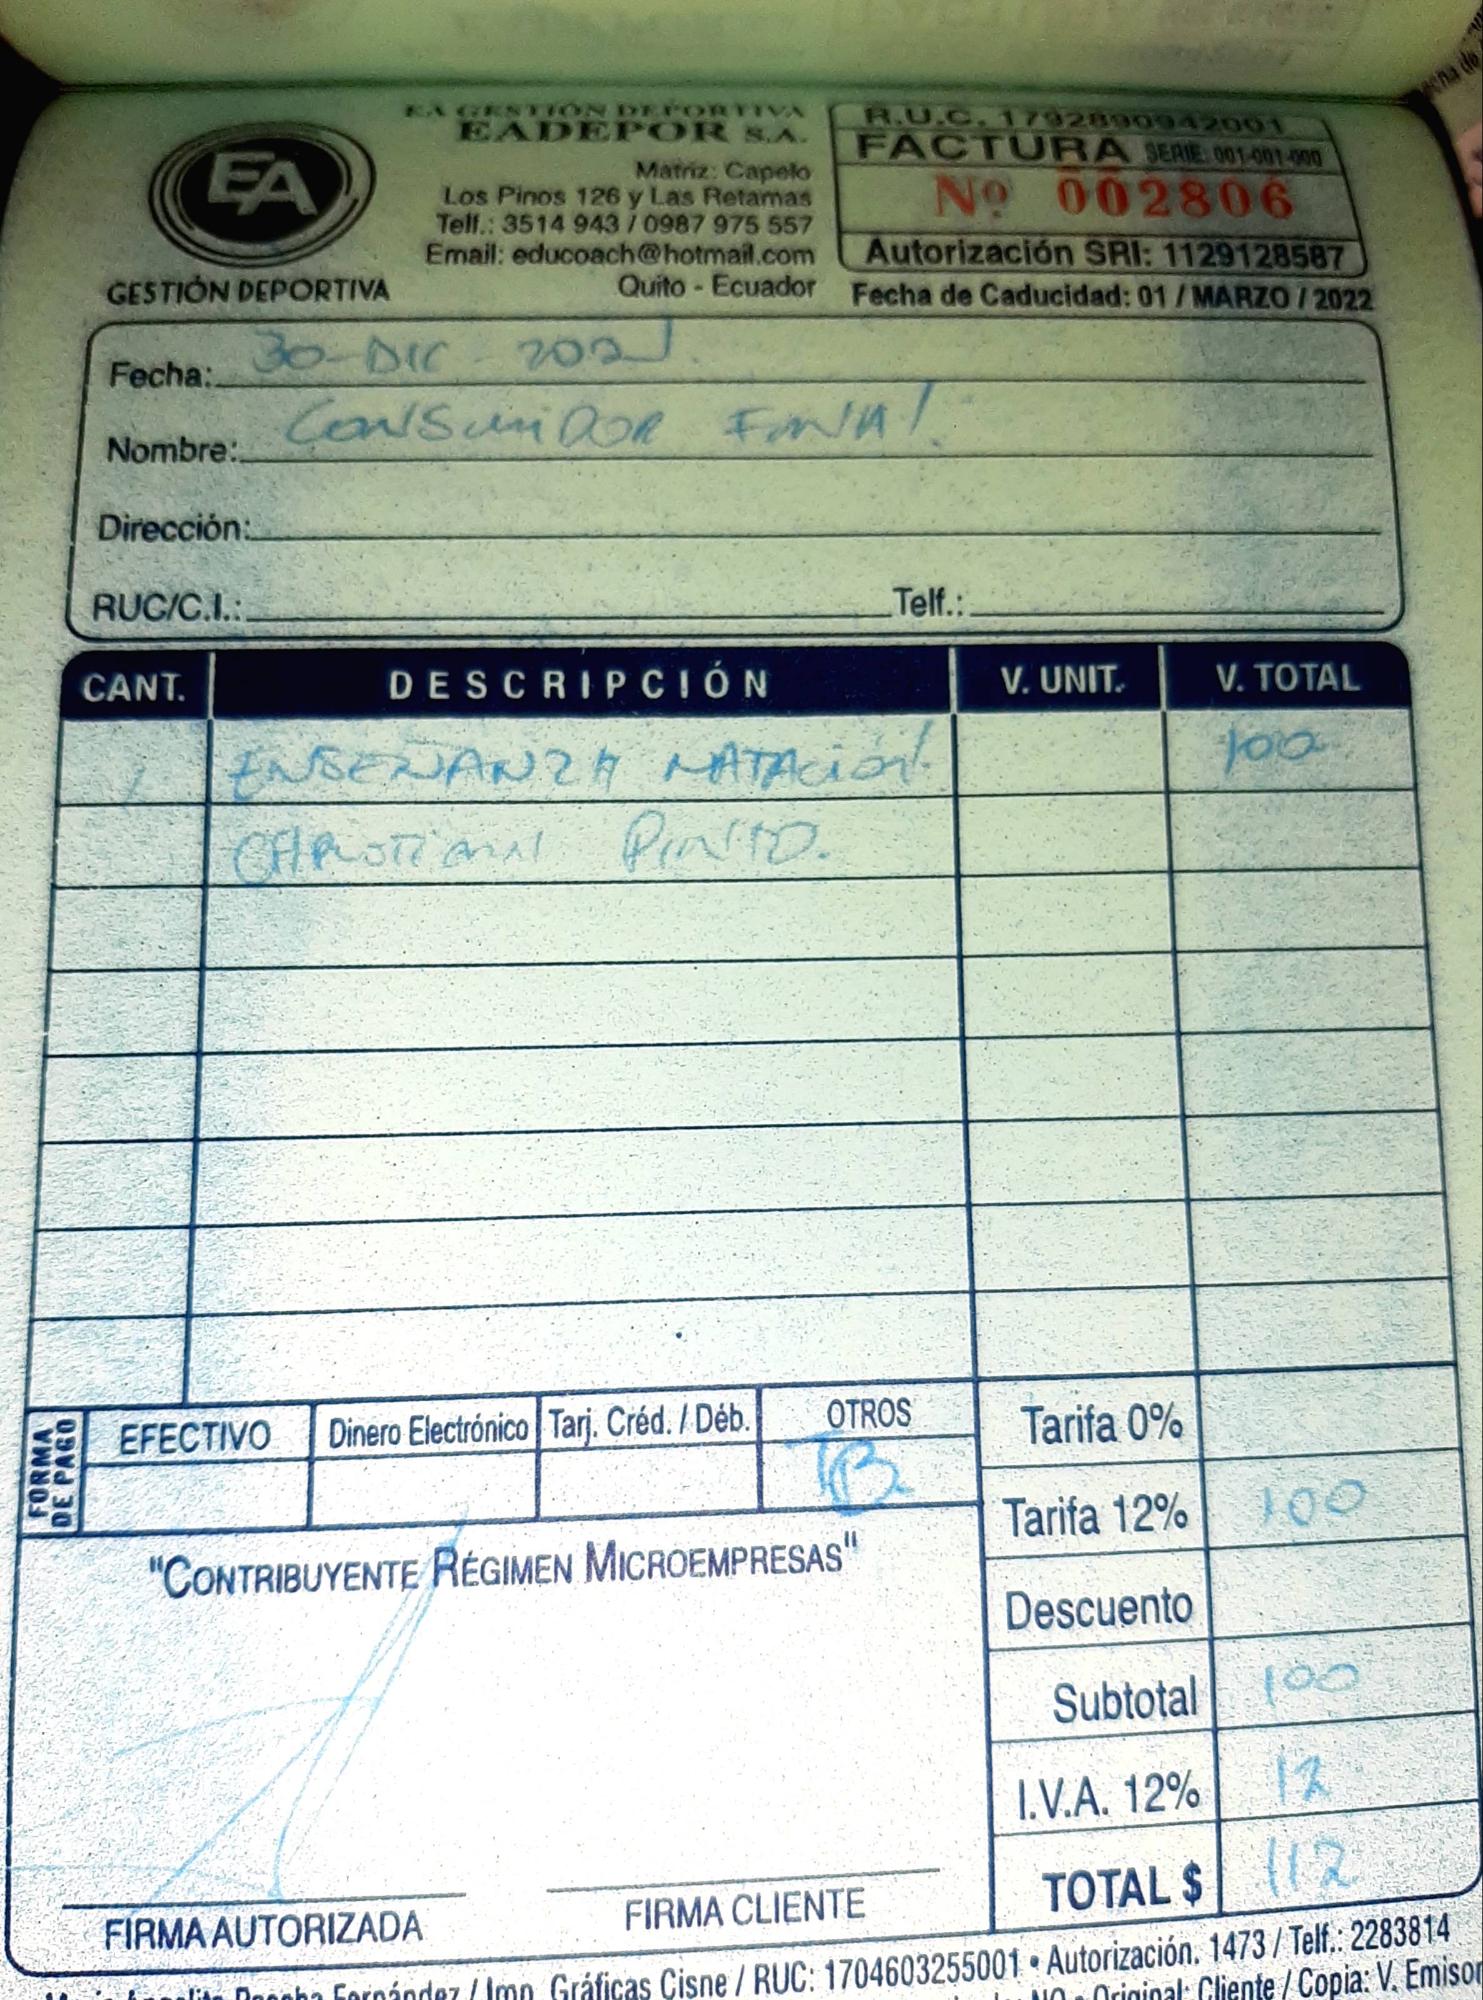 EA GESTIÓN DEPORTIVA
EADEPOR S.A.
Matriz: Capelo
Los Pinos 126 y Las Retamas
Telf.: 3514 943 / 0987 975 557
Email: educoach@hotmail.com
Quito - Ecuador
EA
GESTIÓN DEPORTIVA
R.U.C. 1792890942001
FACTURA SERIE: 001-001-000
Nº 002806
Autorización SRI: 1129128587
Fecha de Caducidad: 01 / MARZO / 2022
Fecha: 30-DIC-2021
Nombre: CONSUMIDOR FINAL
Dirección:
RUC/C.I.: Telf.:
CANT. DESCRIPCIÓN V. UNIT. V. TOTAL
1 ENSEÑANZA NATACIÓN 100
PINTO.
FORMA DE PAGO
EFECTIVO Dinero Electrónico Tarj. Créd. / Déb. OTROS
TB
"CONTRIBUYENTE RÉGIMEN MICROEMPRESAS"
Tarifa 0%
Tarifa 12% 100
Descuento
Subtotal 100
I.V.A. 12% 12
TOTAL $ 112
FIRMA AUTORIZADA FIRMA CLIENTE
Fernández / Imp. Gráficas Cisne / RUC: 1704603255001 • Autorización. 1473 / Telf.: 2283814
NO • Original: Cliente / Copia: V. Emisor